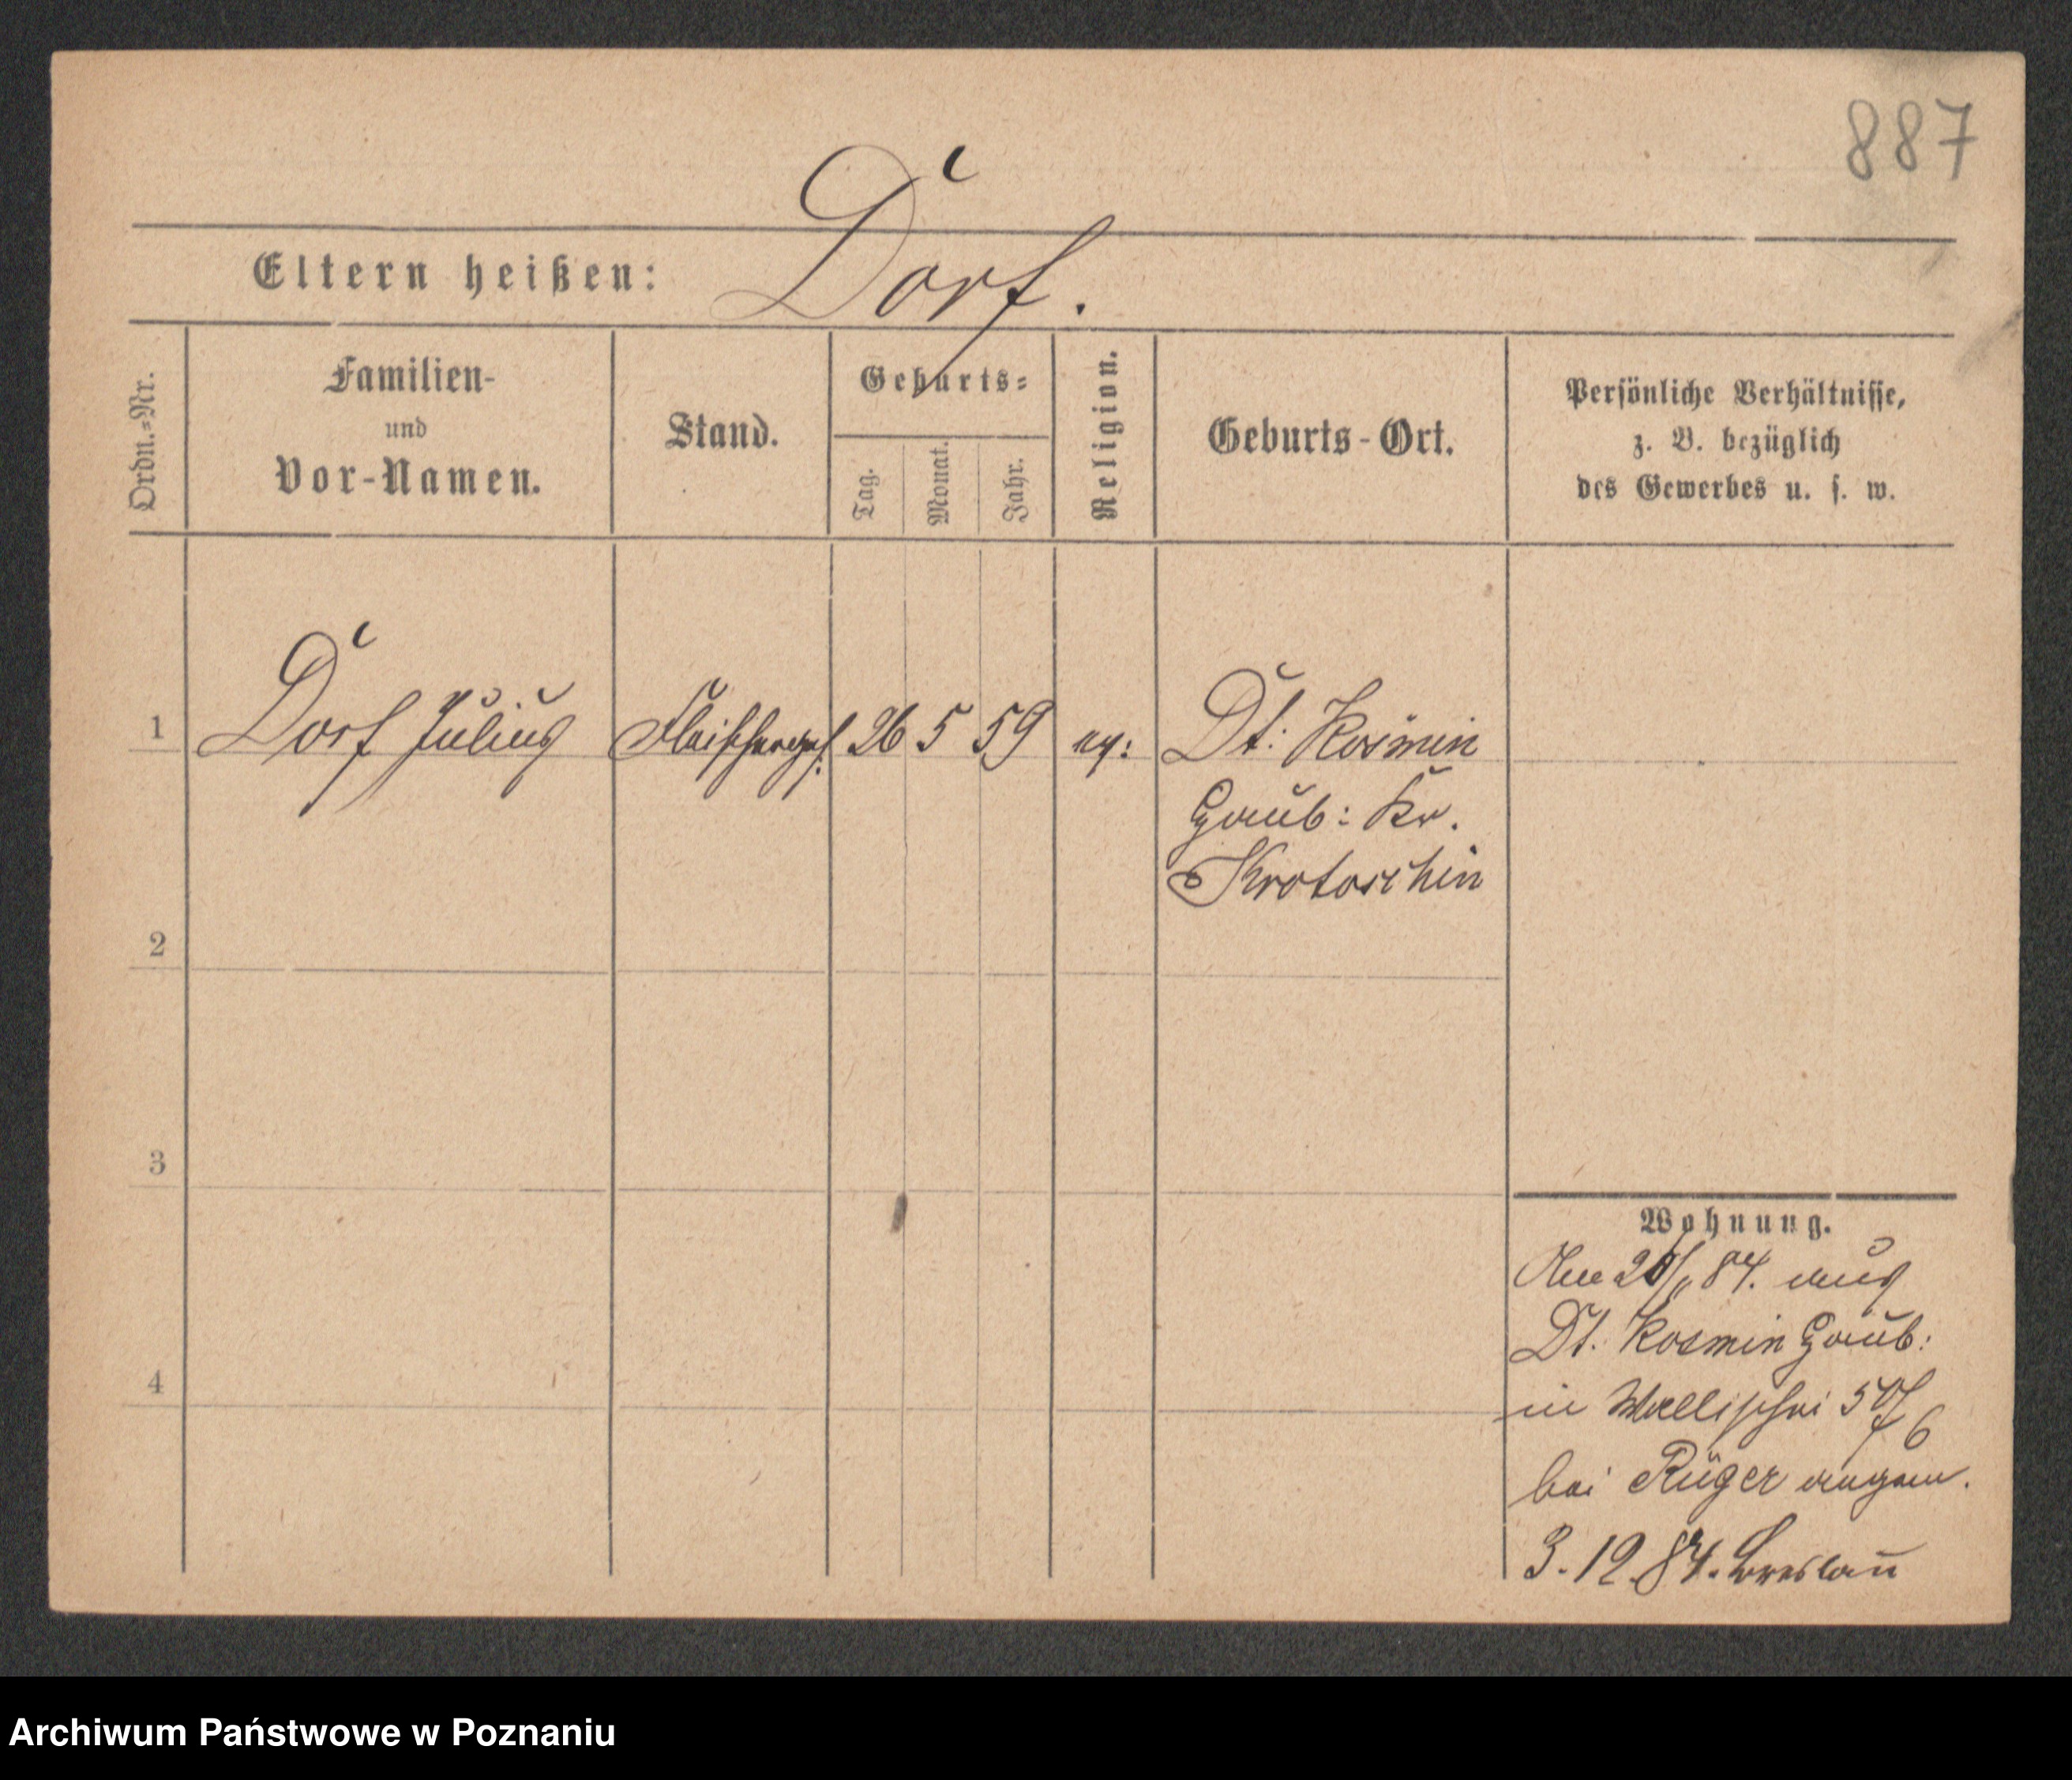 887
Eltern heißen: Dorf.
Ordn.=Nr.
Familien-
und
Vor-Namen.
Stand.
Geburts=
Tag.
Monat.
Jahr.
Religion.
Geburts-Ort.
Persönliche Verhältnisse,
z. B. bezüglich
des Gewerbes u. s. w.
1 Dorf Julius Fleischerges. 26 5 59 ev: Dt: Kosmin
Haub: Kr.
Krotoschin
2
3
4
Wohnung.
Am 84. aus
Dt. Kosmin Haub:
in Wallischei 5
bei Rüger angem.
3.12.84. Breslau
Archiwum Państwowe w Poznaniu